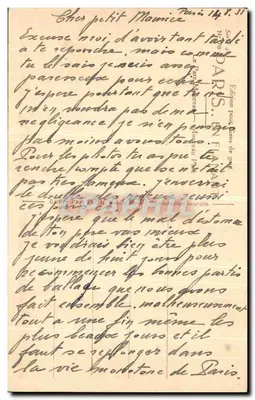 Paris 14.8.31
Cher petit Maurice
Excuse moi d'avoir tant tardé
a te repondre, mais comme
tu le sais je suis assez
paresseux pour ecrire
j'espère pourtant que tu ne
m'en voudra pas de ma
negligeance, je n'en pensais
pas moins a vous tous.
Pour les photos tu as pu te
rendre compte que ce n'etait
pas tres fameux. j'enverrai
de
j'espère que le mal d'estomac
de ton père va mieux
je voudrais bien être plus
jeune de huit jours pour
recommencer les bonnes parties
de ballage que nous avons
fait ensemble. malheureusement
tout a une fin même les
plus beaux jours et il
faut se replonger dans
la vie monotone de Paris.
PARIS